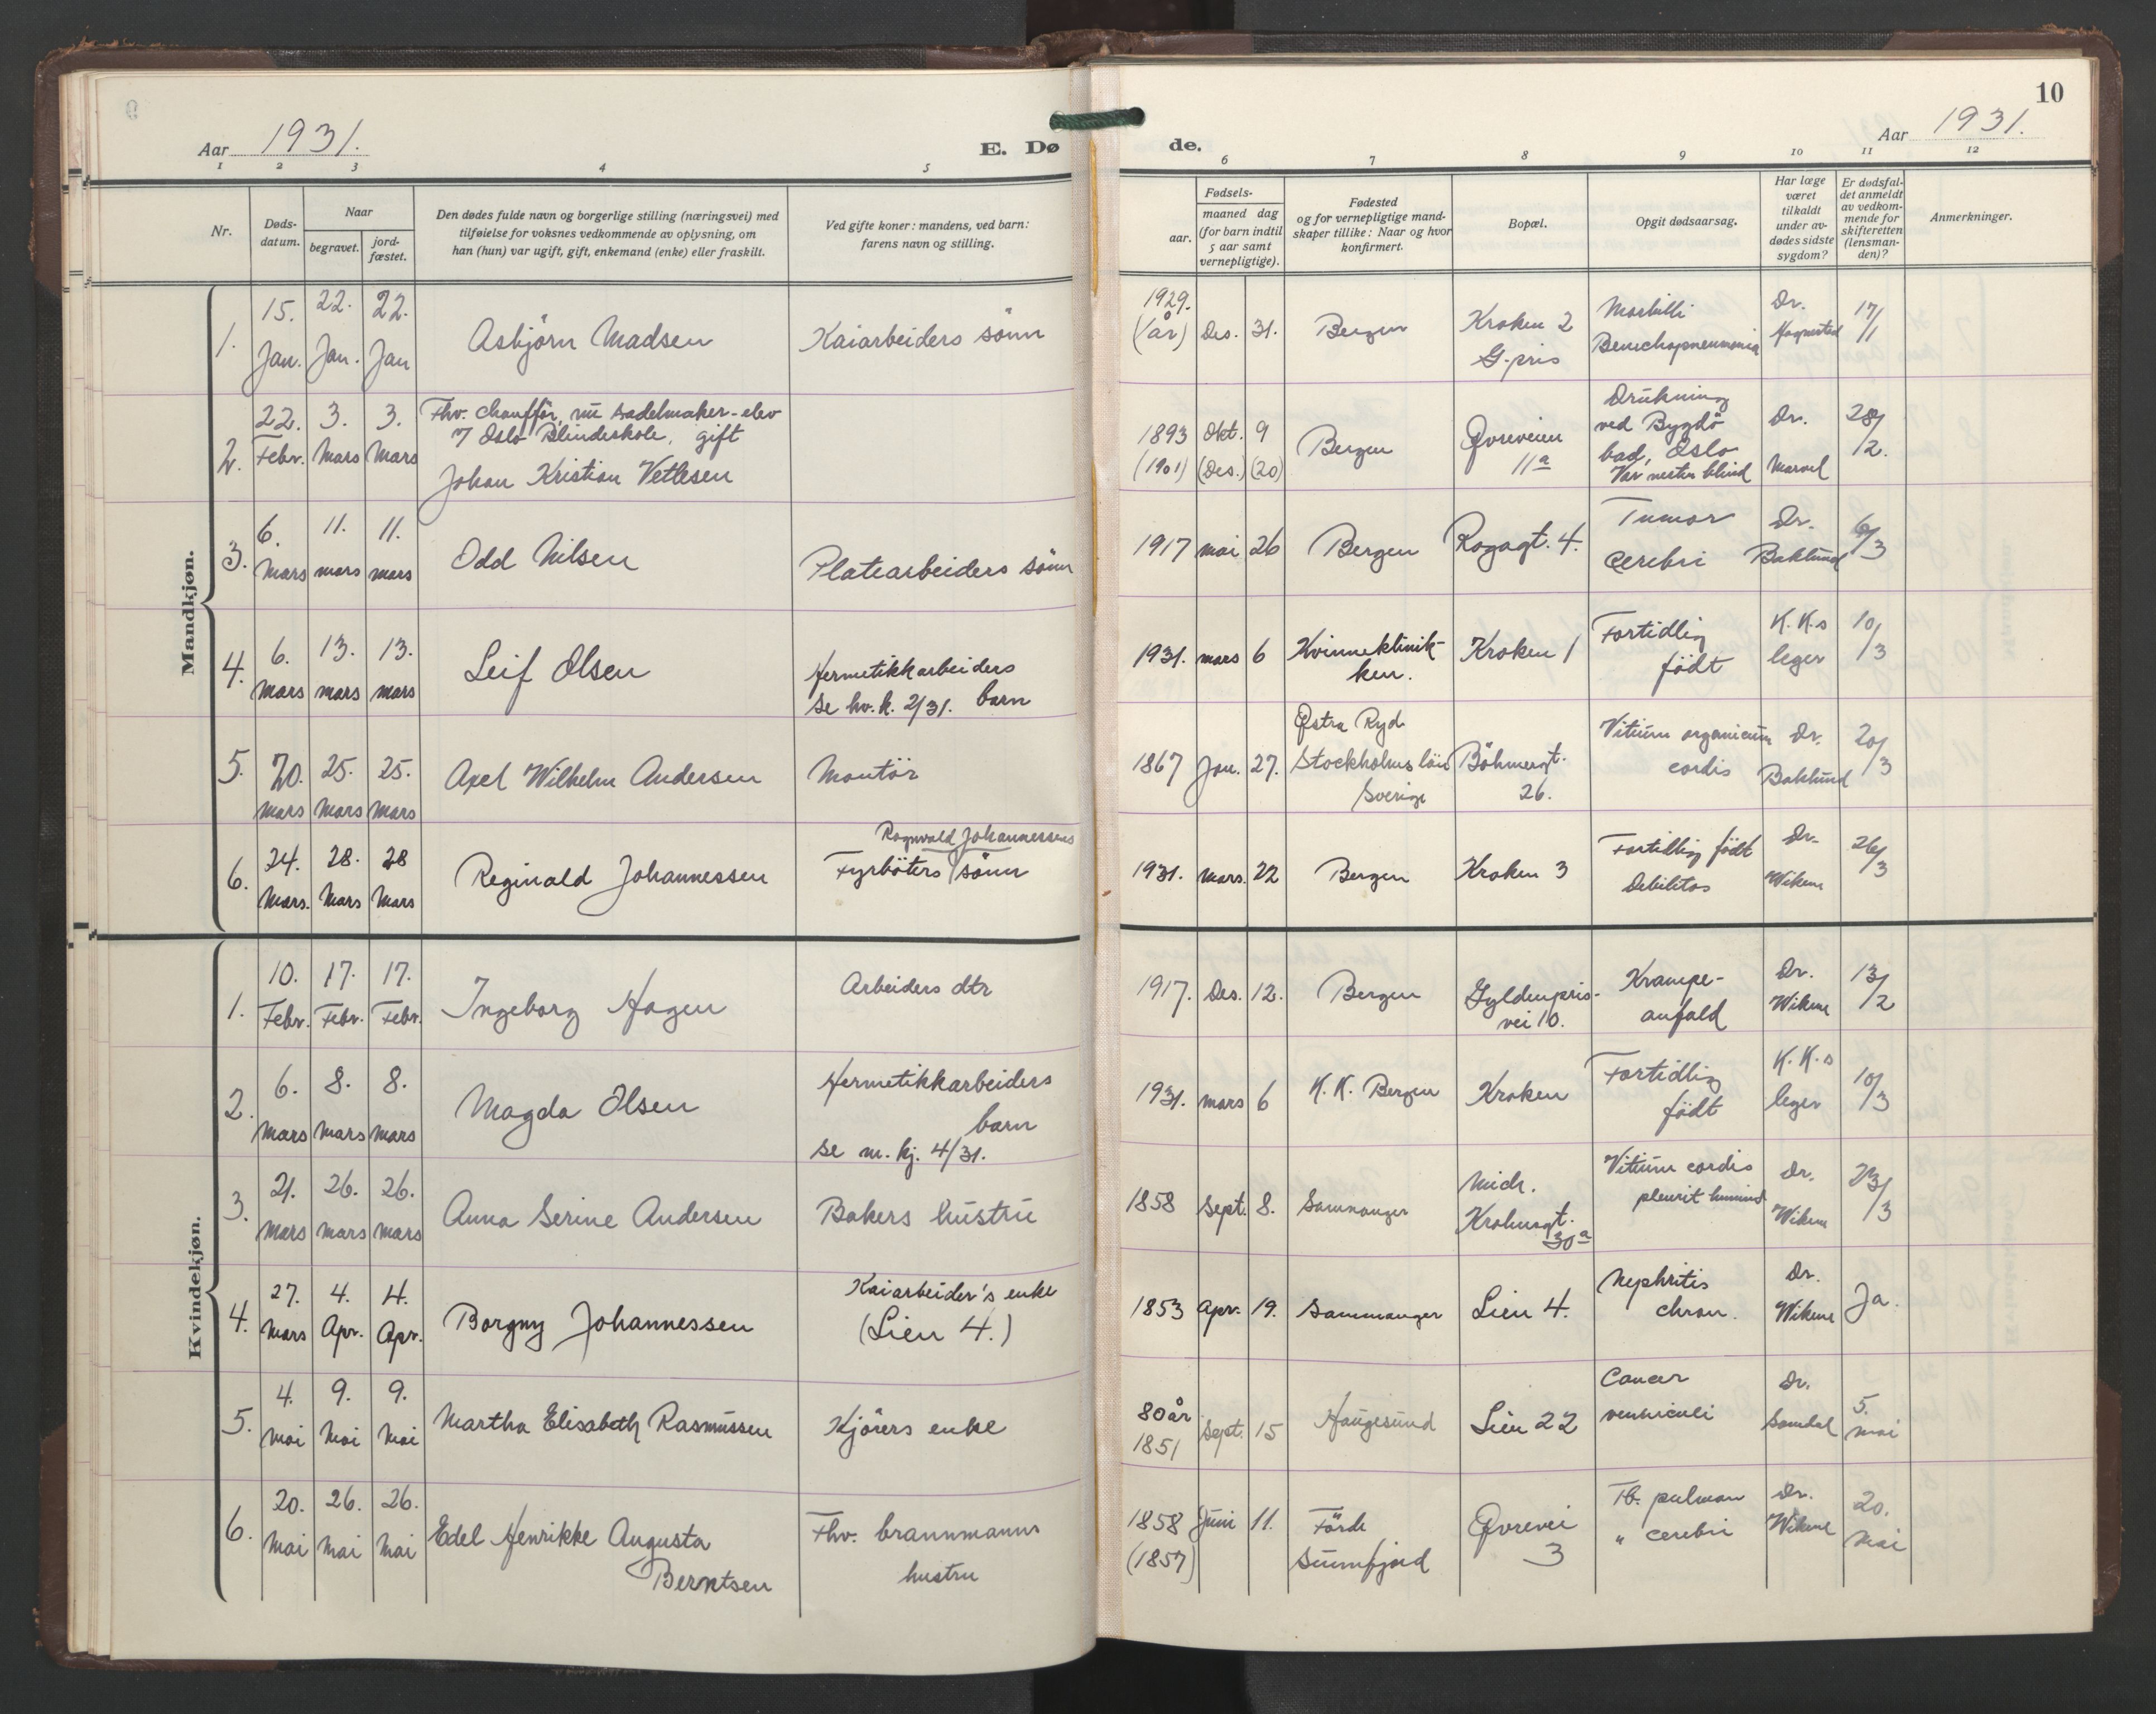 10
Aar 1931.
E. Dø
de.
Aar 1931.
1 2 3 4 5 6 7 8 9 10 11 12
Nr.
Døds-
datum.
Naar
begravet.
jord-
fæstet.
Den dødes fulde navn og borgerlige stilling (næringsvei) med
tilføielse for voksnes vedkommende av oplysning, om
han (hun) var ugift, gift, enkemand (enke) eller fraskilt.
Ved gifte koner: mandens, ved barn:
farens navn og stilling.
Fødsels-
aar.
maaned dag
(for barn indtil
5 aar samt
vernepligtige).
Fødested
og for vernepligtige mand-
skaper tillike: Naar og hvor
konfirmert.
Bopæl.
Opgit dødsaarsag.
Har læge
været
tilkaldt
under av-
dødes sidste
sygdom?
Er dødsfal-
det anmeldt
av vedkom-
mende for
skifteretten
(lensman-
den)?
Anmerkninger.
Mandkjøn.
1.
15. Jan.
22. Jan.
22. Jan
Asbjörn Madsen
Kaiarbeiders sönn
1929.
(1 år)
Des. 31.
Bergen
Kroken 2
G.pris
Morbilli
Dr.
17/1
2.
22. Febr.
3. Mars
3. Mars
Fhv. chaufför, nu sadelmaker-elev
7 Oslo Blindeskole, gift
Johan Kristian Vetlesen
1893 Okt. 9
(1901) (Des.) (20)
Bergen
Øvreveien
11a
Drukning
ved Bygdö
bad, Oslo
Var nesten blind
Dr.
28/2.
3.
6. Mars
11. mars
11. mars
Odd Nilsen
Platearbeiders sönn
1917 mai 26
Bergen
Rogagt. 4.
Tumor
cerebri
Dr.
Baklund
6/3
4.
6. Mars
13. mars
13. mars
Leif Olsen
Hermetikkarbeiders
barn
Se kv.k. 2/31.
1931. mars 6
Kvinneklinik-
ken.
Kroken 1
Fortidlig
födt
K.K.s
leger
10/3
5.
20. mars
25. Mars
25. Mars
Axel Wilhelm Andersen
Montör
1867 Jan. 27.
Østra Ryd
Stockholms län
Sverige
Böhmergt.
26.
Vitium organicum
cordis
Dr.
Baklund
20/3
6.
24. Mars.
28. Mars
28 Mars
Reginald Johannessen
Ragnvald Johannessens
Fyrböters sönn
1931. Mars. 22
Bergen
Kroken 3
Fortidlig födt
Debilitas
Dr.
Wikene
26/3
Kvindekjøn.
1.
10. Febr.
17. Febr.
17. Febr.
Ingeborg Hagen
Arbeiders dtr
1917. Des. 12.
Bergen
Gyldenpris-
vei 10.
Krampe-
anfald
Dr.
Wikene
13/2
2.
6. mars
8. Mars
8. mars
Magda Olsen
Hermetikkarbeiders
barn
Se m.kj. 4/31.
1931. mars 6
K.K. Bergen
Kroken
Fortidlig
födt
K.K.s
leger
10/3
3.
21. Mars
26. mars
26. mars
Anna Serine Andersen
Bakers hustru
1858 Sept. 8.
Samnanger
Mich.
Krohnsgt.
30a
Vitium cordis
pleurit
Dr.
Wikene
23/3
4.
27. Mars
4. Apr.
4. Apr.
Borgny Johannessen
Kaiarbeider's enke
(Lien 4.)
1853 Apr. 19.
Samnanger
Lien 4.
Nephritis
chron.
Dr.
Wikene
Ja.
5.
4. Mai
9. Mai
9. Mai
Martha Elisabeth Rasmussen
Kjörers enke
80 år
1851
Sept. 15
Haugesund
Lien 22
Cancer
ventriculi
Dr.
Samdal
5.
mai
6.
20. Mai
26. Mai
26. Mai
Edel Henrikke Augusta
Berntsen
Fhv. brannmanns
hustru
1858
(1857)
Juni 11.
Förde
Sunnfjord
Øvrevei
3
Tb. pulmon
" cerebri
Dr.
Wikene
20.
Mai